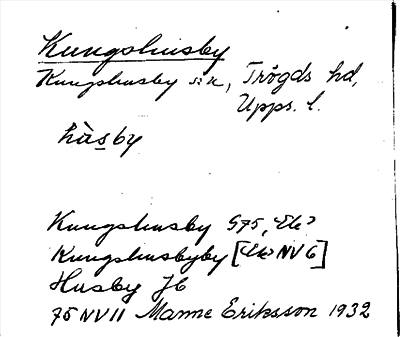 Kungshusby
Kungshusby sn, Trögds hd,
Upps. l.
hàsby
Kungshusby G75, Ek
Kungshusbyby [Ek NV 6]
Husby Jb
75 NV 11 Manne Eriksson 1932